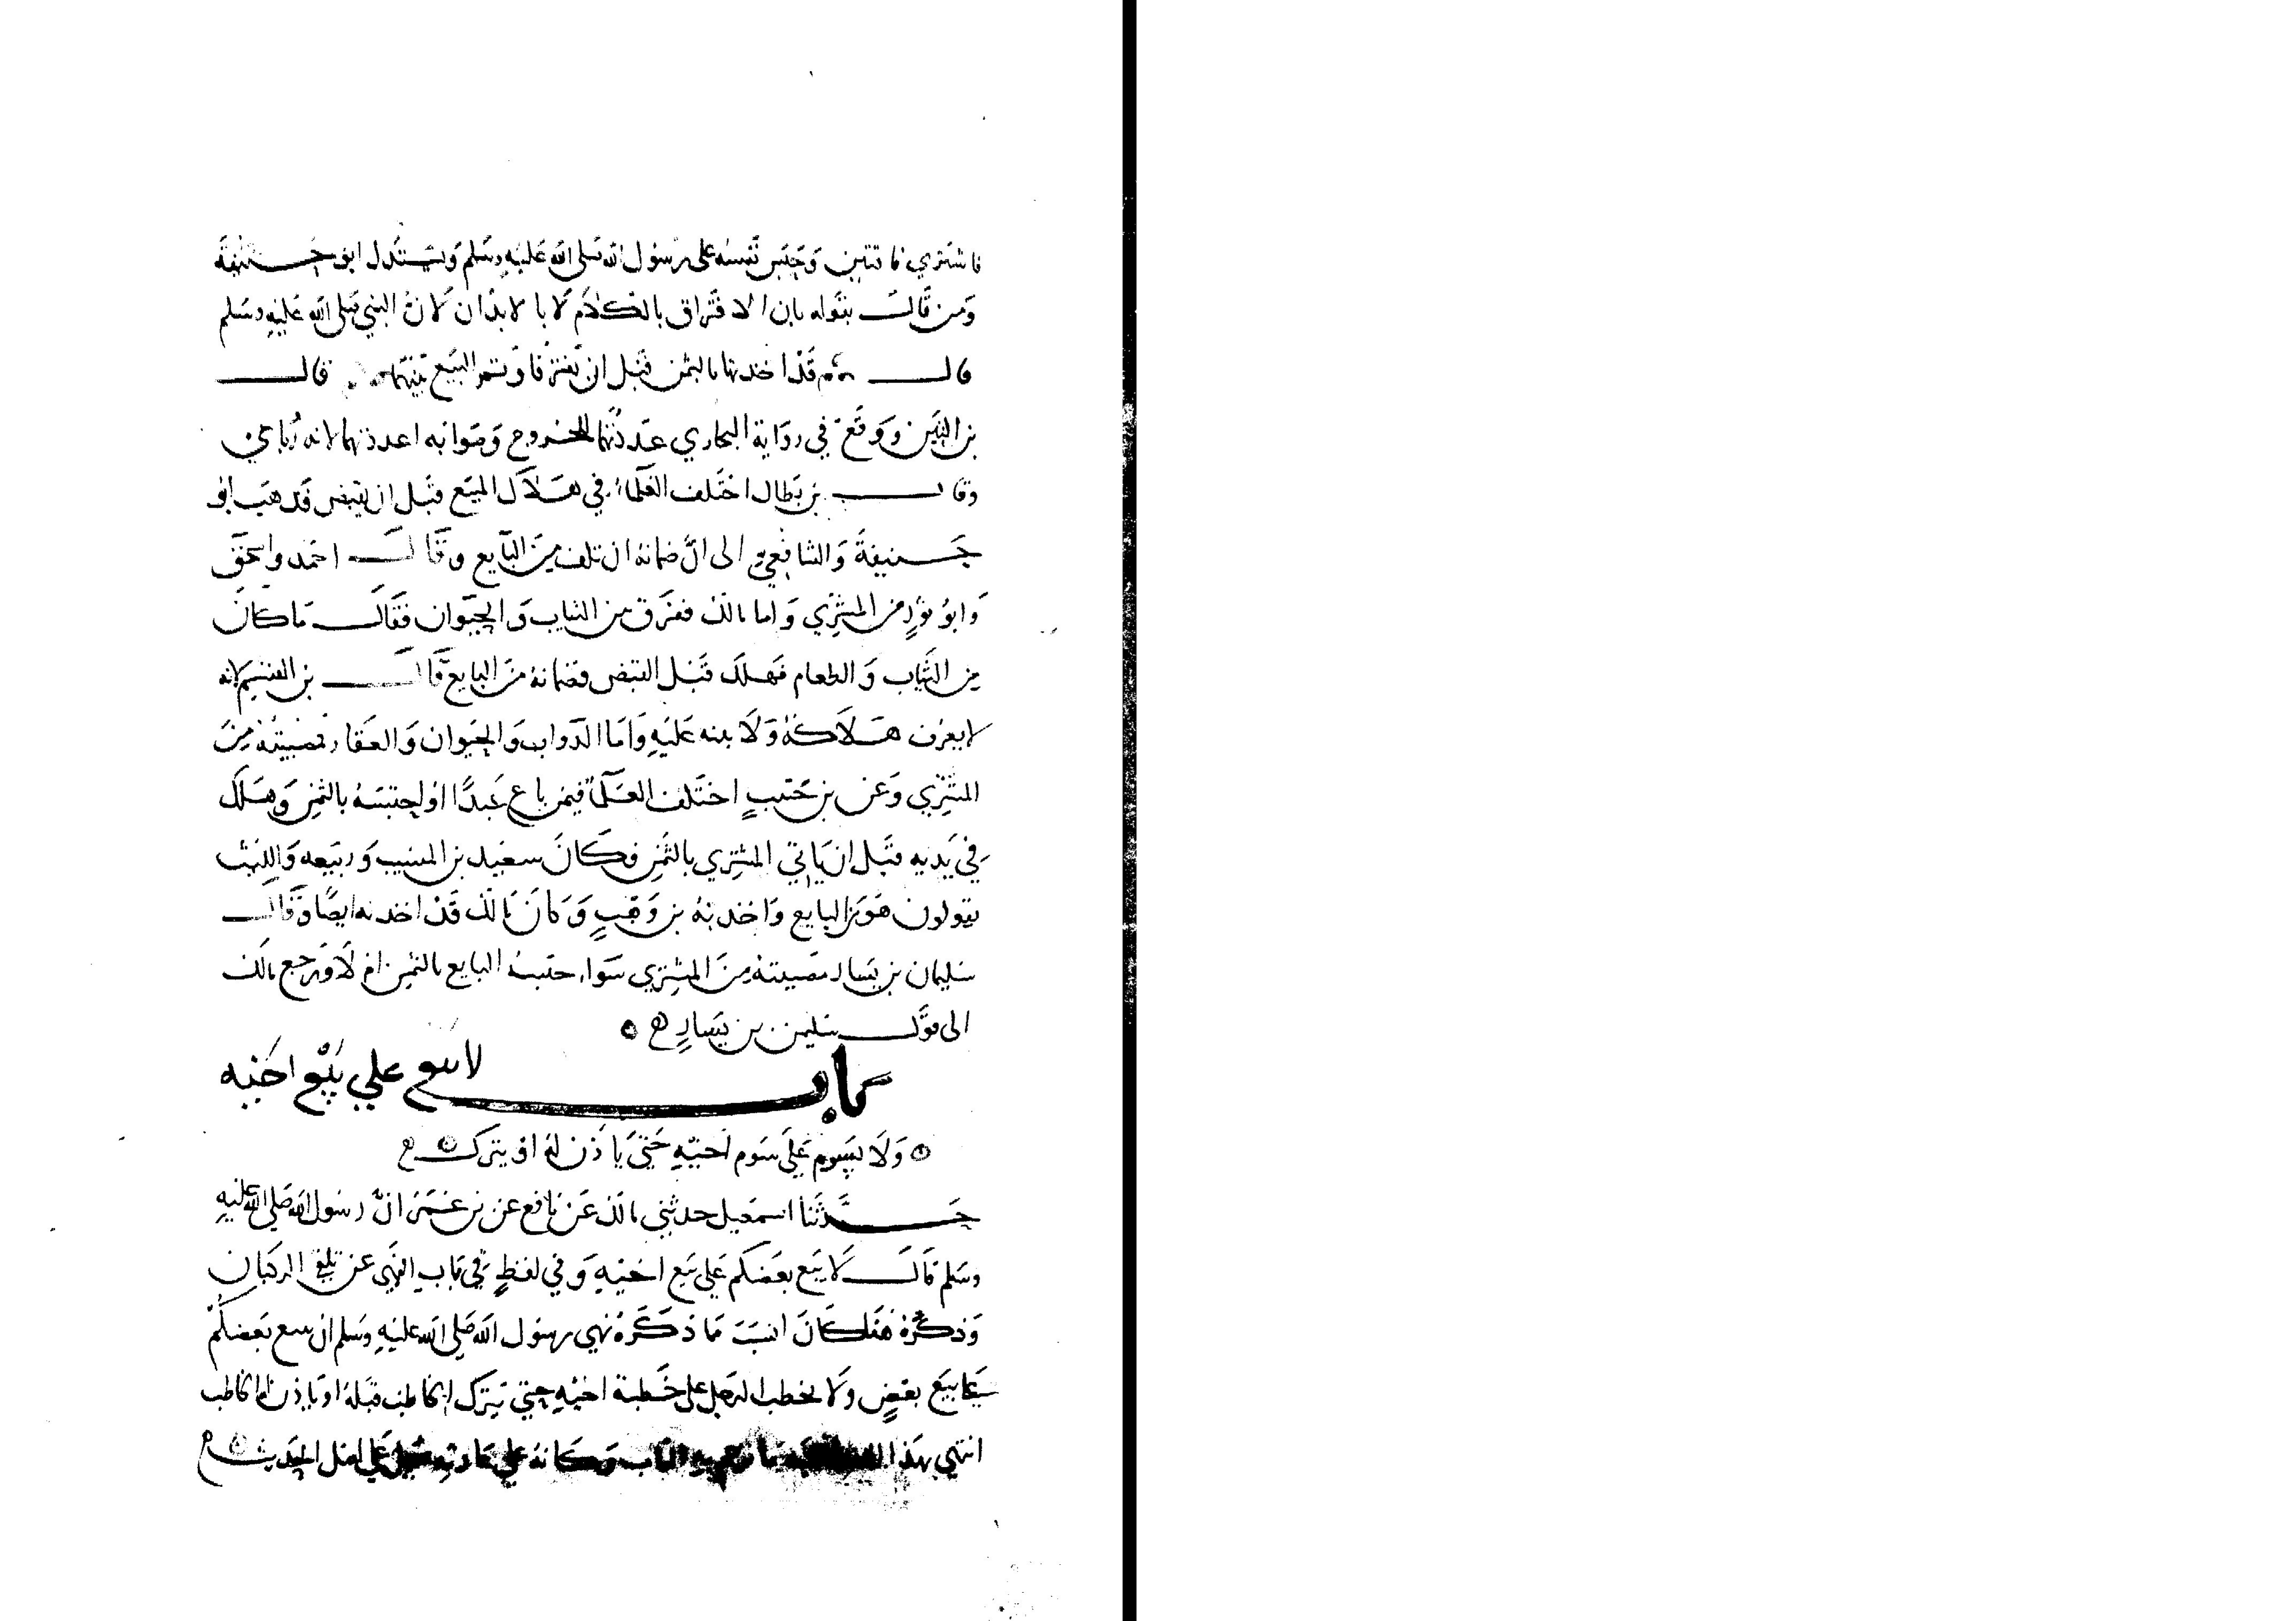 فاشتري ناقتين وحبس نفسه على رسول الله صلى الله عليه وسلم ويستدل ابو حنيفة
ومن قال بقوله بان الافتراق بالكلام لا بالابدان لان النبي صلى الله عليه وسلم
قال قد اخذتها بالثمن قبل ان يفترقا وتم البيع بينهما قال
بن التين ووقع في رواية البخاري عددتهما للخروج وصوابه اعددتهما لانه رباعي
وقال بن بطال اختلف العلماء في هلاك المبيع قبل ان يقبض فذهب ابو
حنيفة والشافعي الى ان ضمانه ان تلف من البايع وقال احمد واسحق
وابو ثور من المشتري واما مالك ففرق بين الثياب والحيوان فقال ما كان
من الثياب والطعام فهلك قبل القبض فضمانه من البايع قال بن القسم لانه
لا يعرف هلاكه ولا بينه عليه واما الدواب والحيوان والعقار فمصيبته من
المشتري وعن بن حبيب اختلف العلماء فيمن باع عبدا او احتبسه بالثمن وهلك
في يديه قبل ان ياتي المشتري بالثمن فكان سعيد بن المسيب وربيعه والليث
يقولون هو من البايع واخذ به بن وهب وكان مالك قد اخذ به ايضا وقال
سليمان بن يسار مصيبته من المشتري سواء حبسه البايع بالثمن ام لا ورجع مالك
الى قول سليمن بن يسار
باب لا يبيع علي بيع اخيه
ولا يسوم علي سوم اخيه حتي ياذن له او يترك
حدثنا اسمعيل حدثني مالك عن نافع عن بن عمر ان رسول الله صلى الله عليه
وسلم قال لا يبيع بعضكم علي بيع اخيه وفي لفظ في باب النهي عن تلقي الركبان
وذكره هناك كان انسب مما ذكره نهي رسول الله صلى الله عليه وسلم ان يبيع بعضكم
علي بيع بعض ولا يخطب الرجل علي خطبة اخيه حتي يترك الخاطب قبله او ياذن له الخاطب
انتهي بهذا الباب وكانه علي عادته علي اصل الحديث